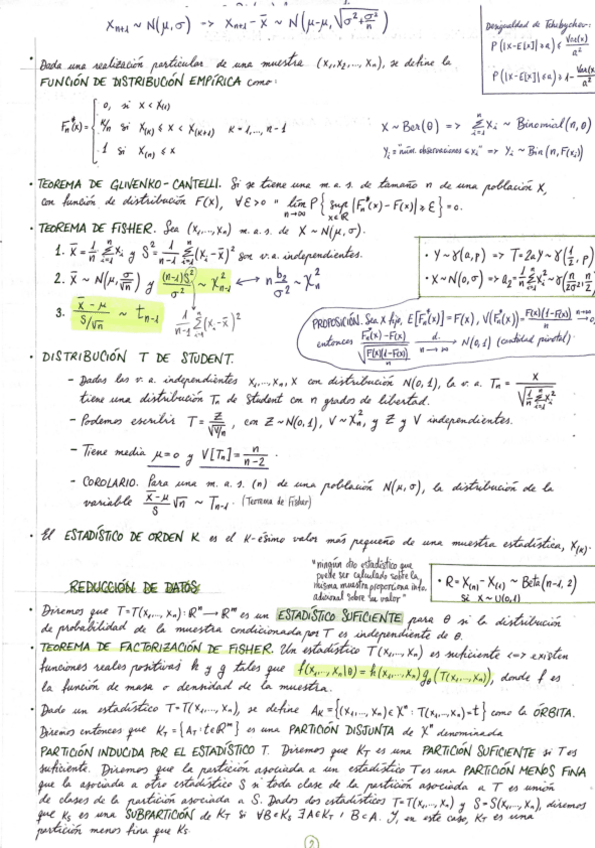 X_{n+1} ~ N(μ,σ) -> X_{n+1} - X̄ ~ N(μ-μ, √(σ²+σ²/n))
Desigualdad de Tchebychev:
P(|X-E[X]|≥a) ≤ Var(X)/a²
P(|X-E[X]|≤a) ≥ 1- Var(X)/a²
· Dada una realización particular de una muestra (x₁,x₂,...,xₙ), se define la
FUNCIÓN DE DISTRIBUCIÓN EMPÍRICA como:
0, si x < X₍₁₎
Fₙ*(x) = k/n si X₍ₖ₎ ≤ x < X₍ₖ₊₁₎ k=1,...,n-1
1 si X₍ₙ₎ ≤ x
X ~ Ber(θ) => Σᵢ₌₁ⁿ Xᵢ ~ Binomial(n,θ)
Yᵢ = "núm. observaciones ≤ xᵢ" => Yᵢ ~ Bin(n,F(xᵢ))
· TEOREMA DE GLIVENKO-CANTELLI. Si se tiene una m.a.s. de tamaño n de una población X,
con función de distribución F(x), ∀ε>0 lim n→∞ P{ sup x∈ℝ |Fₙ*(x) - F(x)| ≥ ε } = 0.
· TEOREMA DE FISHER. Sea (X₁,...,Xₙ) m.a.s. de X ~ N(μ,σ).
1. X̄ = 1/n Σᵢ₌₁ⁿ Xᵢ y S² = 1/(n-1) Σᵢ₌₁ⁿ (Xᵢ-X̄)² son v.a. independientes.
2. X̄ ~ N(μ, σ/√n) y (n-1)S²/σ² ~ χ²ₙ₋₁ ↔ n b₂/σ² ~ χ²ₙ
3. (X̄-μ)/(S/√n) ~ tₙ₋₁
1/(n-1) Σᵢ₌₁ⁿ (Xᵢ-X̄)²
· Y ~ γ(a,p) => T = 2aY ~ γ(1/2, p)
· X ~ N(0,σ) => a₂ = 1/n Σᵢ₌₁ⁿ Xᵢ² ~ γ(n/2σ², n/2)
PROPOSICIÓN. Sea X fijo, E[Fₙ*(x)] = F(x), V(Fₙ*(x)) = F(x)(1-F(x))/n n→∞ → 0
entonces (Fₙ*(x)-F(x))/√(F(x)(1-F(x))/n) d. n→∞ → N(0,1) (cantidad pivotal)
· DISTRIBUCIÓN T DE STUDENT.
- Dadas las v.a. independientes X₁,...,Xₙ, X con distribución N(0,1), la v.a. Tₙ = X/√(1/n Σᵢ₌₁ⁿ Xᵢ²)
tiene una distribución Tₙ de Student con n grados de libertad.
- Podemos escribir T = Z/√(V/n), con Z ~ N(0,1), V ~ χ²ₙ, y Z y V independientes.
- Tiene media μ=0 y V[Tₙ] = n/(n-2).
- COROLARIO. Para una m.a.s. (n) de una población N(μ,σ), la distribución de la
variable (X̄-μ)/S √n ~ Tₙ₋₁. (Teorema de Fisher)
· El ESTADÍSTICO DE ORDEN K es el k-ésimo valor más pequeño de una muestra estadística, X₍ₖ₎.
"ningún otro estadístico que
puede ser calculado sobre la
misma muestra proporciona info.
adicional sobre su valor"
· R = X₍ₙ₎ - X₍₁₎ ~ Beta(n-1, 2)
si X ~ U(0,1)
REDUCCIÓN DE DATOS
· Diremos que T=T(X₁,...,Xₙ): ℝⁿ → ℝᵐ es un ESTADÍSTICO SUFICIENTE para θ si la distribución
de probabilidad de la muestra condicionada por T es independiente de θ.
· TEOREMA DE FACTORIZACIÓN DE FISHER. Un estadístico T(X₁,...,Xₙ) es suficiente <=> existen
funciones reales positivas h y g tales que f(x₁,...,xₙ|θ) = h(x₁,...,xₙ) g_θ(T(x₁,...,xₙ)), donde f es
la función de masa o densidad de la muestra.
· Dado un estadístico T=T(X₁,...,Xₙ), se define Aₖ={(x₁,...,xₙ)∈χⁿ : T(x₁,...,xₙ)=t} como la ÓRBITA.
Diremos entonces que K_T={A_T : t∈ℝᵐ} es una PARTICIÓN DISJUNTA de χⁿ denominada
PARTICIÓN INDUCIDA POR EL ESTADÍSTICO T. Diremos que K_T es una PARTICIÓN SUFICIENTE si T es
suficiente. Diremos que la partición asociada a un estadístico T es una PARTICIÓN MENOS FINA
que la asociada a otro estadístico S si toda clase de la partición asociada a T es unión
de clases de la partición asociada a S. Dados dos estadísticos T=T(X₁,...,Xₙ) y S=S(X₁,...,Xₙ), diremos
que K_S es una SUBPARTICIÓN de K_T si ∀B∈K_S ∃A∈K_T / B⊂A. Y, en este caso, K_T es una
partición menos fina que K_S.
2